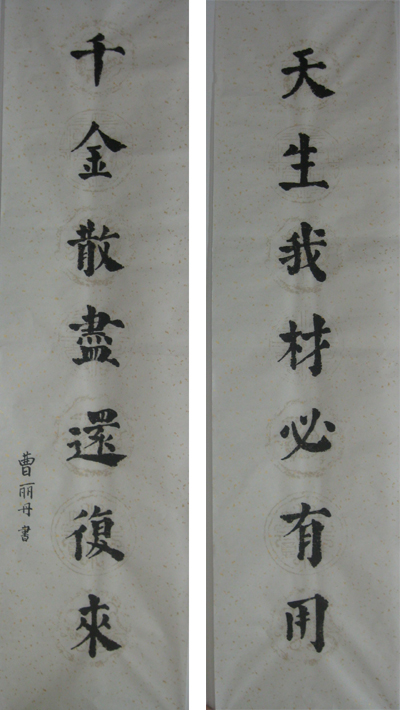 天生我材必有用
千金散盡還復來
曹丽丹书